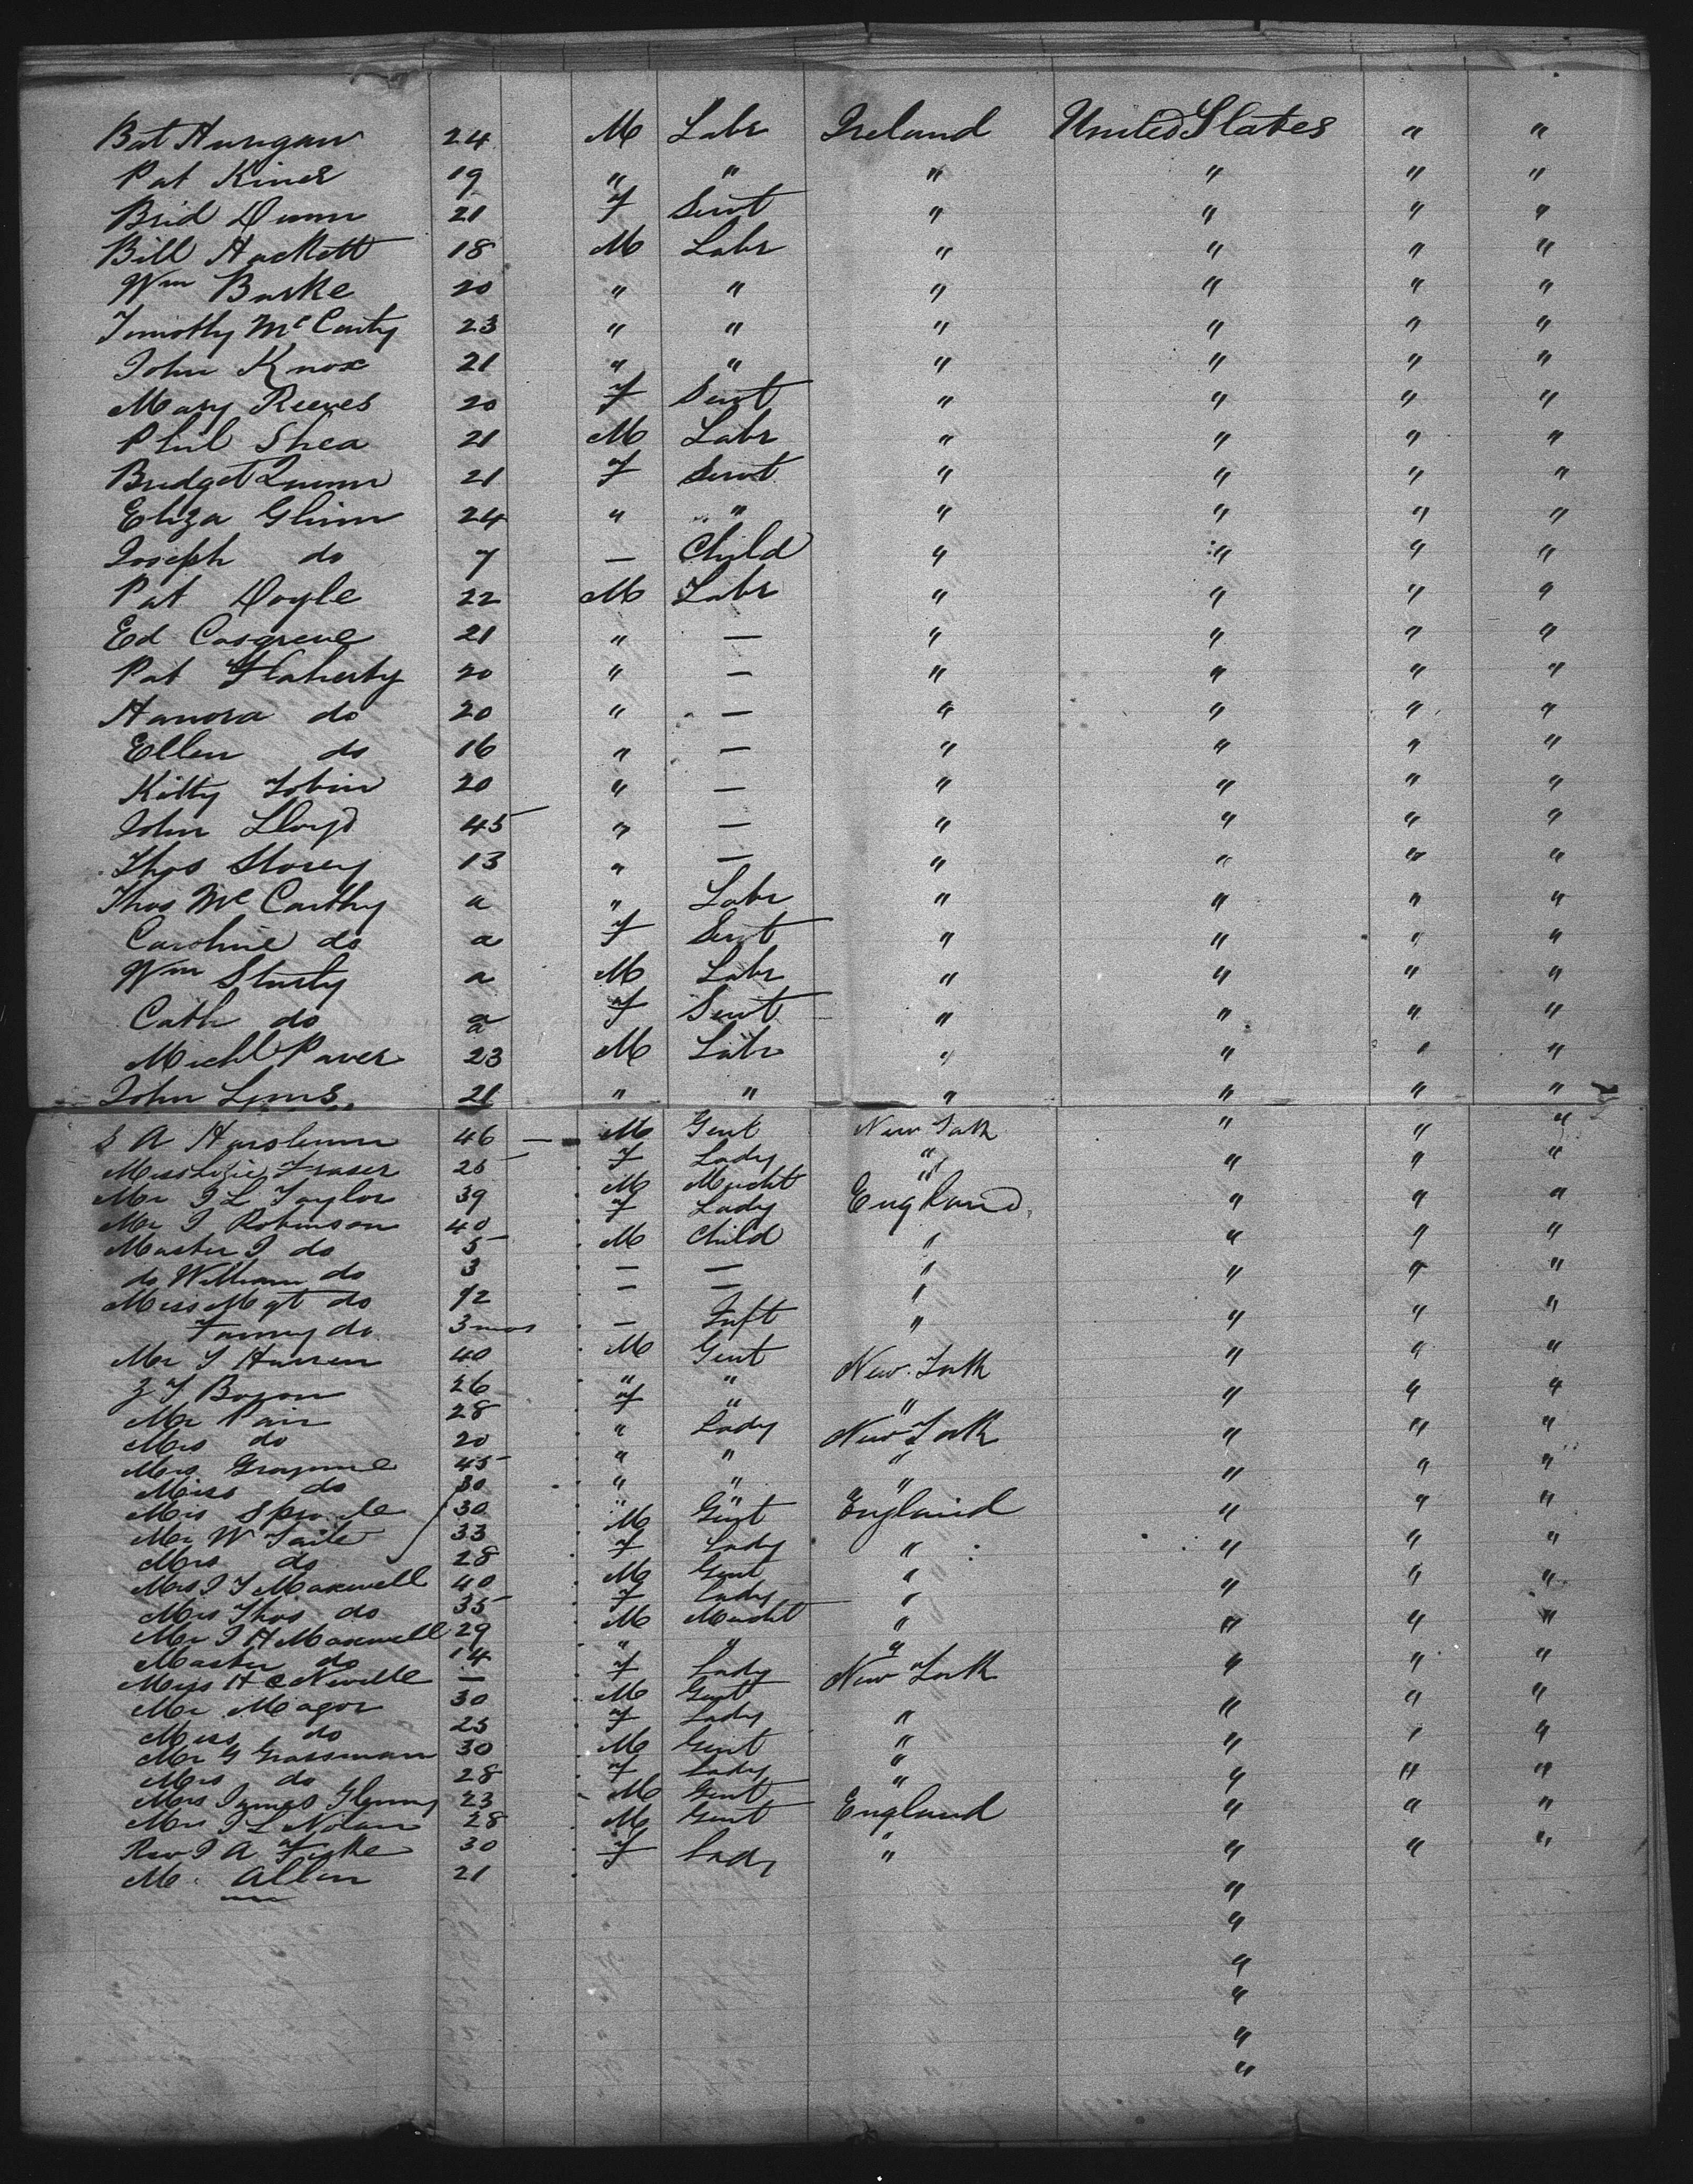 Bat Hurigan 24 M Labr Ireland United States " "
Pat Kiner 19 " " " " " "
Brid Dunn 21 F Servt " " " "
Bill Hackett 18 M Labr " " " "
Wm Burke 20 " " " " " "
Timothy McCarty 23 " " " " " "
John Knox 21 " " " " " "
Mary Reeves 20 F Servt " " " "
Phil Shea 21 M Labr " " " "
Bridget Quinn 21 F Servt " " " "
Eliza Glinn 24 " " " " " "
Joseph do 7 — Child " " " "
Pat Doyle 22 M Labr " " " "
Ed Casgreve 21 " — " " " "
Pat Flaherty 20 " — " " " "
Hanora do 20 " — " " " "
Ellen do 16 " — " " " "
Kitty Tobin 20 " — " " " "
John Lloyd 45 " — " " " "
Thos Storey 13 " — " " " "
Thos McCarthy a " Labr " " " "
Caroline do a F Servt " " " "
Wm Sturty a M Labr " " " "
Cath do a F Servt " " " "
Michl Paver 23 M Labr " " " "
John Lyms 21 " " " " " "
S A 46 — M Gent New York " " "
Miss Lizie Fraser 25 F Lady " " " "
Mr J L Taylor 39 M Mercht " " " "
Mr J Robinson 40 F Lady England " " "
Master J do 5 M Child " " " "
do William do 3 — — " " " "
Miss Mgt do 12 — — "
Fanny do 3 mos — Inft " " " "
Mr J Hansen 40 M Gent New York " " "
Z T Bogon 26 " " " " " "
Mr Pair 28 F " "
Mrs do 20 " Lady New York " " "
Mrs Grayome 45 " " " " " "
Miss do 30 " " "
Mrs 30 " " England " " "
Mr W Taite 33 M Gent
Mrs do 28 F Lady " " " "
Mrs J T Maxwell 40 M Gent " " " "
Mrs Thos do 35 F Lady "
Mr J H Maxwell 29 M Mercht " " " "
Master do 14 " " " " " "
Miss H C Neville — F Lady New York
Mr Magor 30 M Gent " " "
Miss do 25 F Lady "
Mr G Grassman 30 M Gent " " " "
Mrs do 28 F Lady " " " "
Mrs James Glenny 23 M Gent "
Mr J L Nolan 28 M Gent England " " "
Rev J A Fiske 30 F Lady " " " "
M. Allen 21 "
"
"
"
"
"